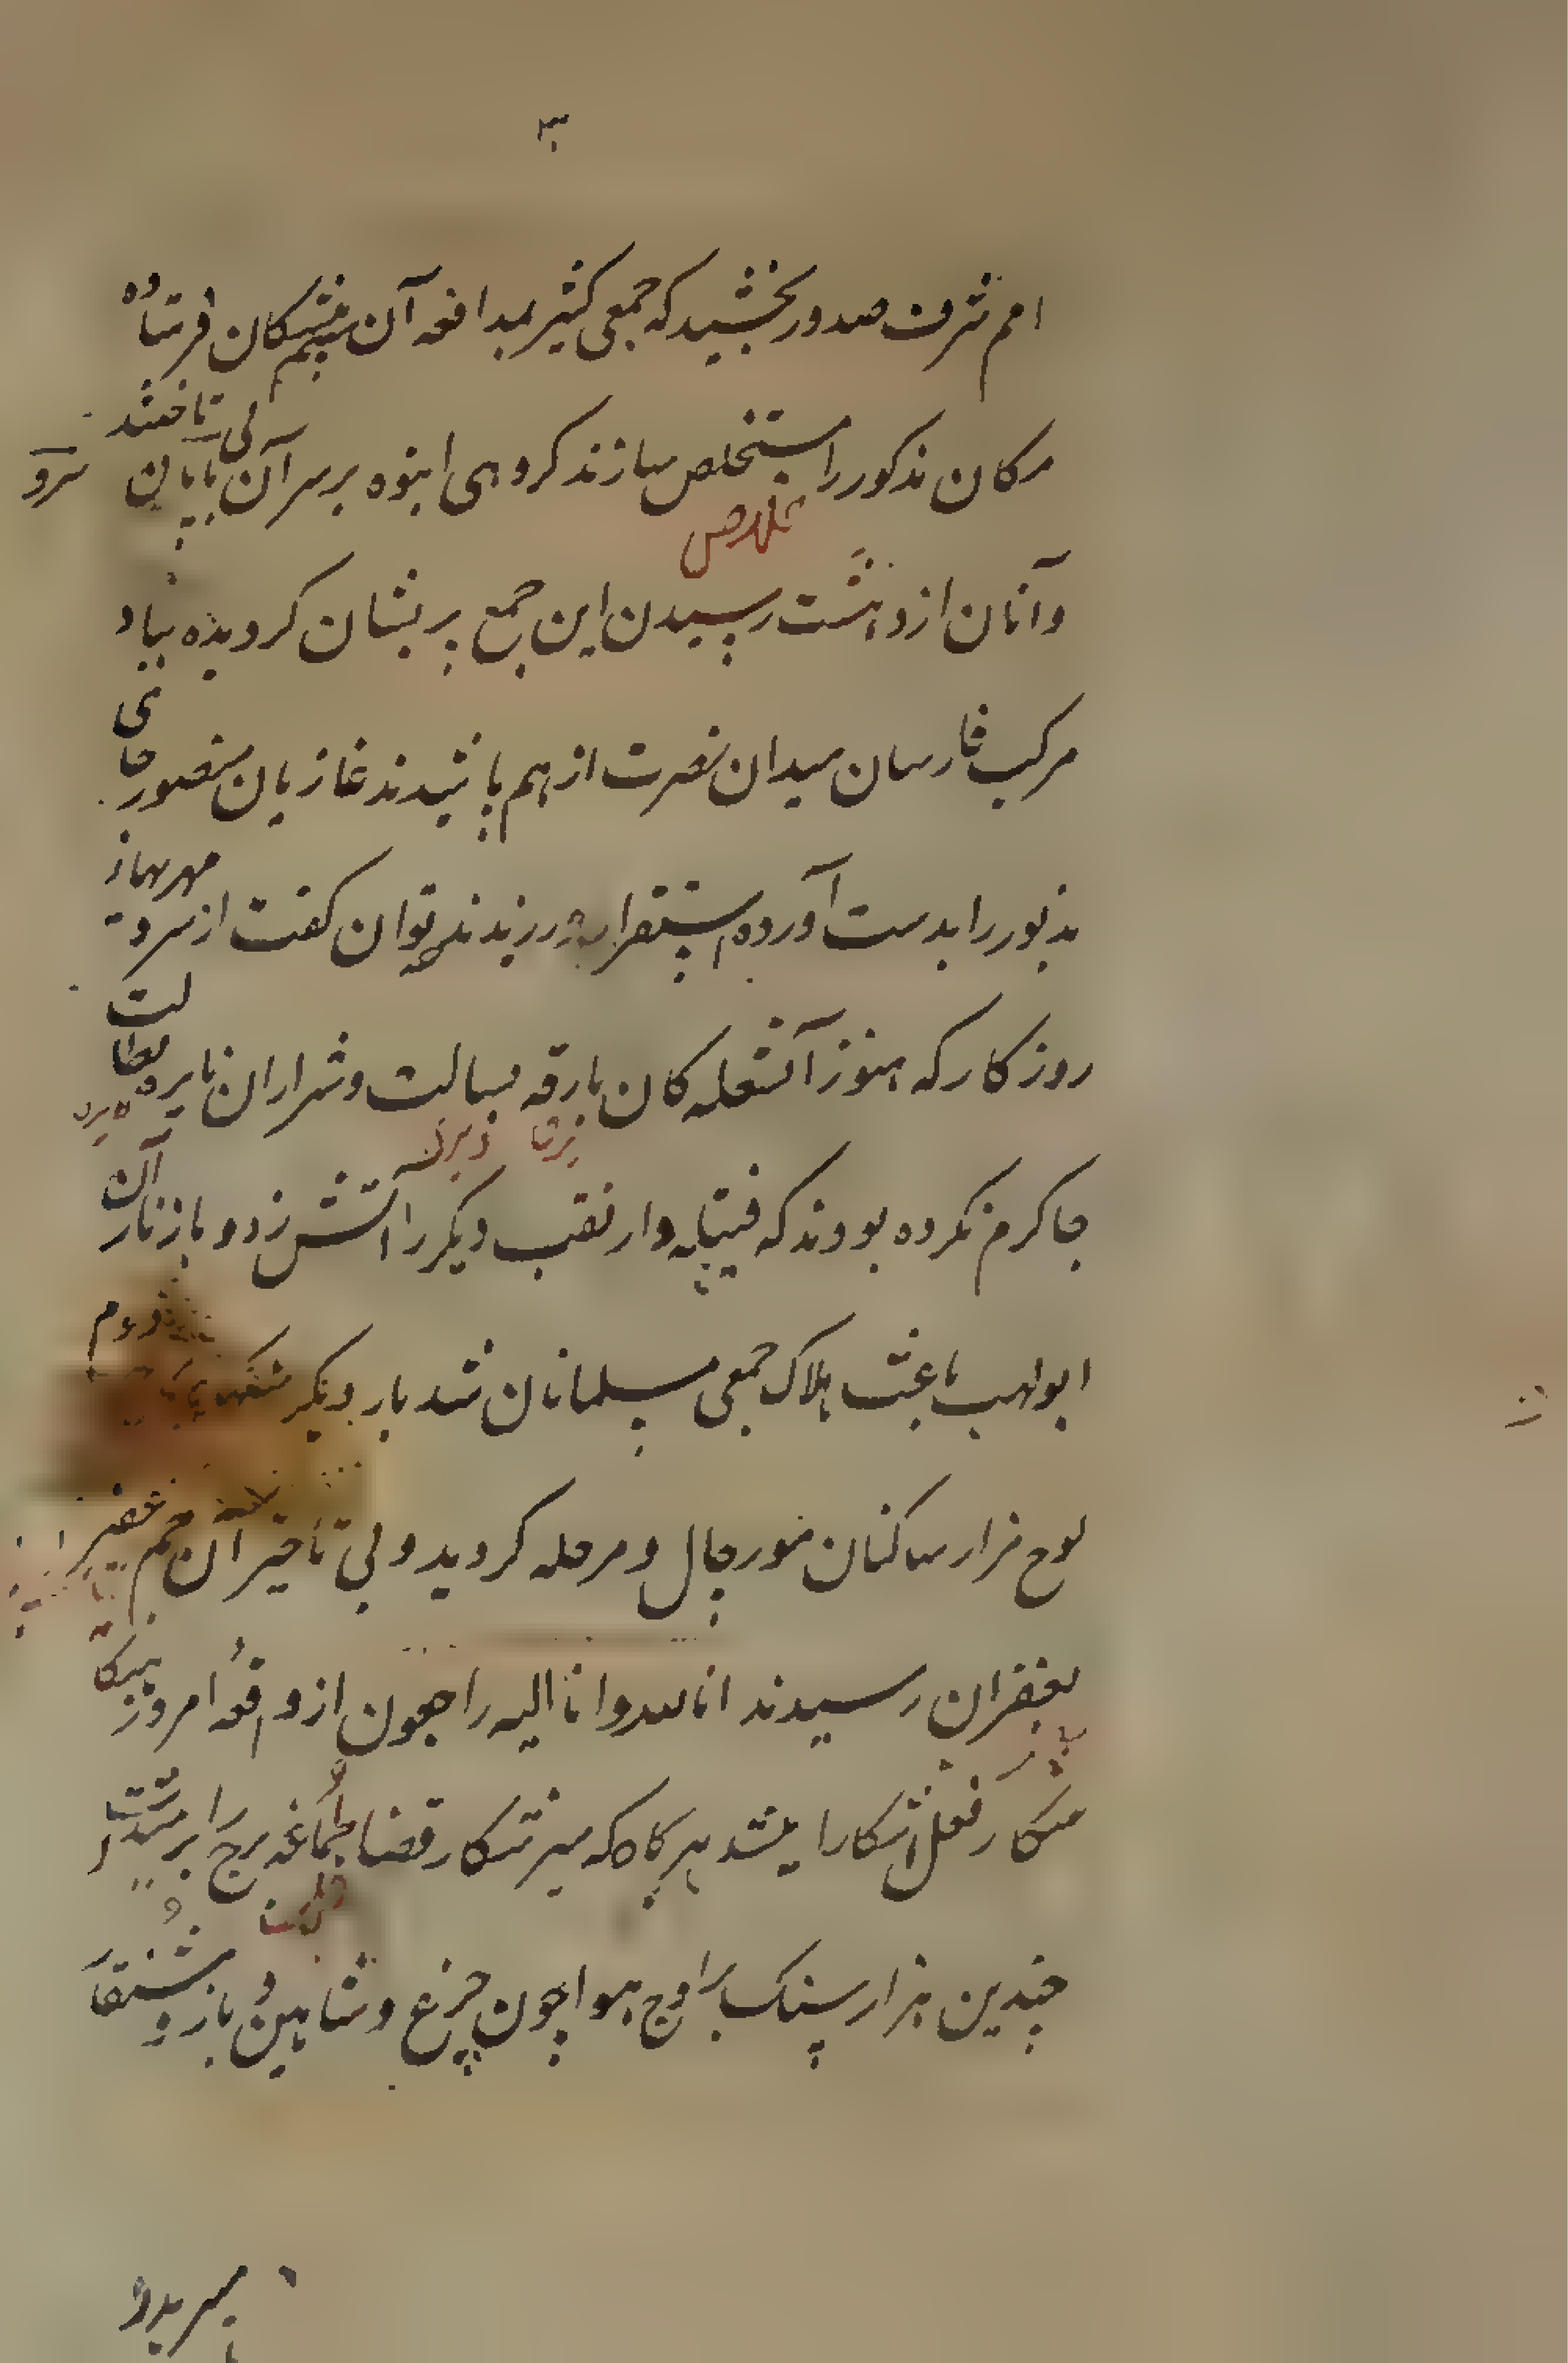 ۳
امم شرف صدور بخشید که جمعی کثیر بمدافعه آن ستم پیشکان فرستاده
مکان مذکور را مستخلص سازند کروهی انبوه بر سر آن بی پایان تاختند
خلاص
و آنان از دهشت رسیدن این جمع پریشان کردیده بباد
مرکب فارسان میدان نصرت از هم پاشیدند غازیان منصور جای
مذبور را بدست آورده استقرار ورزیدند چه توان کفت از سرد مهریهای
روزکار که هنوز آتشعله کان بارقه بسالت و شراران نایره بطالت
جا کرم نکرده بودند که فتیله وار نقب دیکر را آتش زد و باز نار آن
ابولهب باعث هلاک جمعی مسلمانان شد بار دیکر
لوح مزار ساکنان مورچال و مرحله کردید و بی تاخیر آن جم غفیر
بغفران رسیدند انا لله و انا الیه راجعون از واقعه امروز
شکار فعل آشکارا میشد هر کاه که میر شکار قضا طماغه برج را بر
چندین هزار سنک بر اوج هوا چون چرغ و شاهین و باز و شنقار